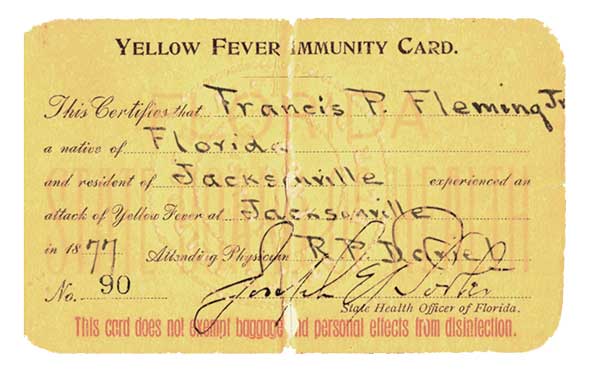 YELLOW FEVER IMMUNITY CARD.
This Certifies that Francis P. Fleming Jr
a native of Florida
and resident of Jacksonville experienced an
attack of Yellow Fever at Jacksonville
in 1877 Attending Physician R. P. Daniel
No. 90 Joseph Y. Porter
State Health Officer of Florida.
This card does not exempt baggage and personal effects from disinfection.